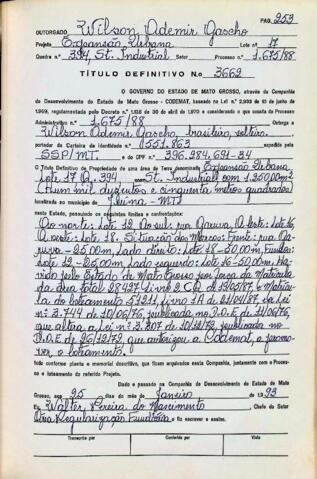 PAG. 253
OUTORGADO Wilson Ademir Gascho
Projeto Expansão Urbana Lote nº 17
Quadra nº 394, St. Industrial Setor Processo nº 1.675/88
TÍTULO DEFINITIVO N.º 3662
O GOVERNO DO ESTADO DE MATO GROSSO, através da Companhia de
Desenvolvimento do Estado de Mato Grosso - CODEMAT, baseado na Lei n.º 2.933 de 10 de junho de
1969, regulamentada pelo Decreto n.º 1.138 de 30 de abril de 1970 e considerando o que consta do Processo
Administrativo n.º 1.675/88 Outorga a
Wilson Ademir Gascho, brasileiro, solteiro.
portador da Carteira de Identidade n.º 551.863 expedida pela
SSP/MT. e do CPF n.º 396.284.691-34
O Título Definitivo de Propriedade de uma área de Terra denominada Expansão Urbana,
Lote 17 Q. 394 St. Industrial com 1.250,00m²
(Hum mil duzentos e cinquenta metros quadrados)
localizada no município de Juina - MT
neste Estado, possuindo os seguintes limites e confrontações:
Ao norte: lote 12. Ao sul: rua Gaúva. A leste: lote 16,
A oeste: lote 18. Situação dos Marcos: Frente: rua
- 25,00m, lado direito: lote 18 - 50,00m, Fundos:
lote 12 - 25,00m, lado esquerdo: lote 16 - 50,00m, Ha-
vido pelo Estado de Mato Grosso por força da Matrícula
da área total 28427 livro 2 CQ de 19/05/87 e Matrícu-
la do loteamento 51211 livro 1A de 21/04/87 da Lei
nº 3.744 de 10/06/76, publicada no D.O.E de 11/06/76,
que altera a Lei nº 3.307 de 10/12/72, publicada no
D.O.E de 26/12/72, que autorizou a Codemat, a promo-
ver, o loteamento.
tudo conforme planta e memorial descritivo, que ficam arquivados nesta Companhia, juntamente com o Proces-
so e loteamento do referido Projeto.
Dado e passado na Companhia de Desenvolvimento do Estado de Mato
Grosso, aos 25 dias do mês de Janeiro de 1993
Eu, Walter Pereira do Nascimento Chefe do Setor
de Regularização Fundiária fiz escrever e assino.
Transcrito por Conferido por Visto